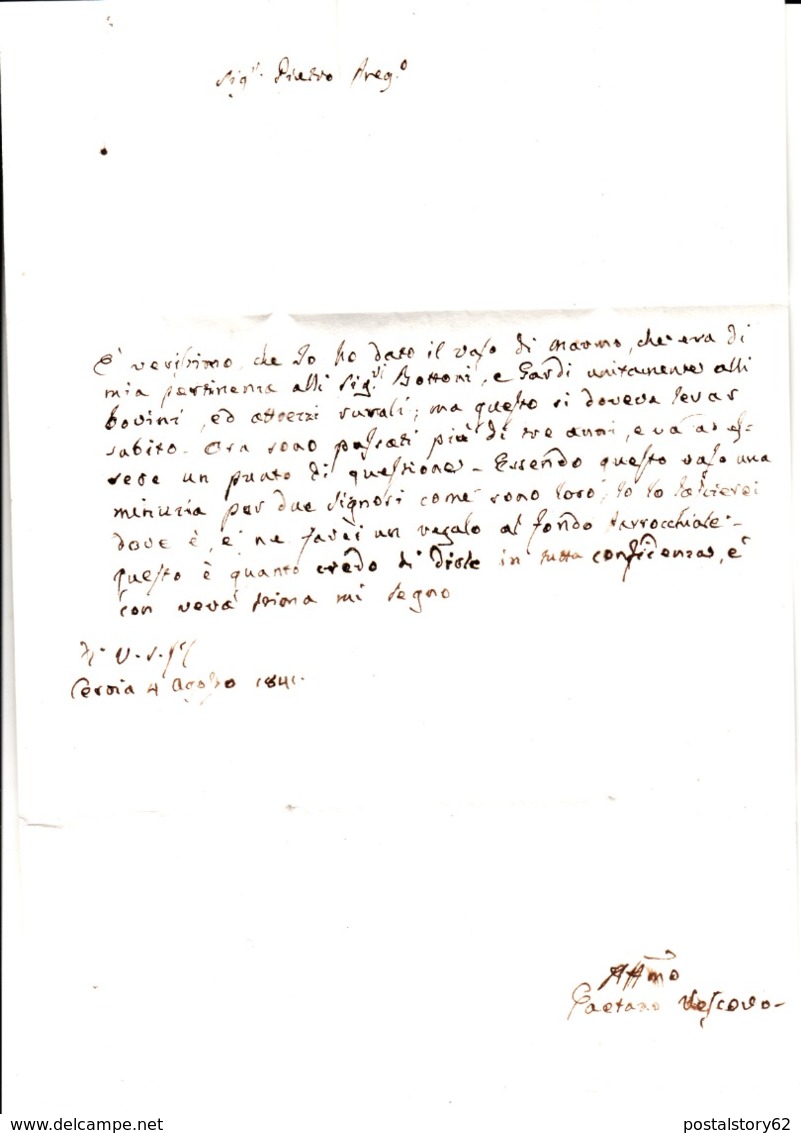 Sig.r Pietro Preg.o
È verissimo, che Io ho dato il vaso di marmo, che era di
mia pertinenza alli Sig.ri Bottoni, e Gardi unitamente alli
bovini, ed attrezzi rurali; ma questo si doveva levar
subito. Ora sono passati più di tre anni, e và ad es=
sere un punto di questione. Essendo questo vaso una
minuzia per due Signori come sono loro, Io lo lascierei
dove è, e ne farei un regalo al fondo Parrocchiale.
Questo è quanto credo di dirle in tutta confidenza, e
con vera stima mi segno
Di V. S.
Cervia 4 Agosto 1841.
Aff.mo
Gaetano Vescovo
delcampe.net
postalstory62